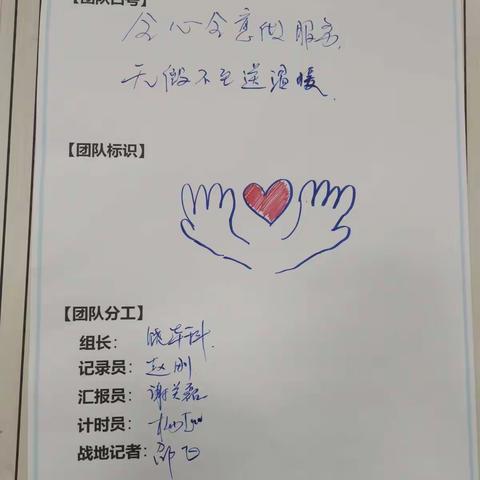 【团队口号】
全心全意做服务,
无微不至送温暖.
【团队标识】
【团队分工】
组长:
记录员: 赵刚
汇报员: 谢关磊
计时员:
战地记者: 邵飞